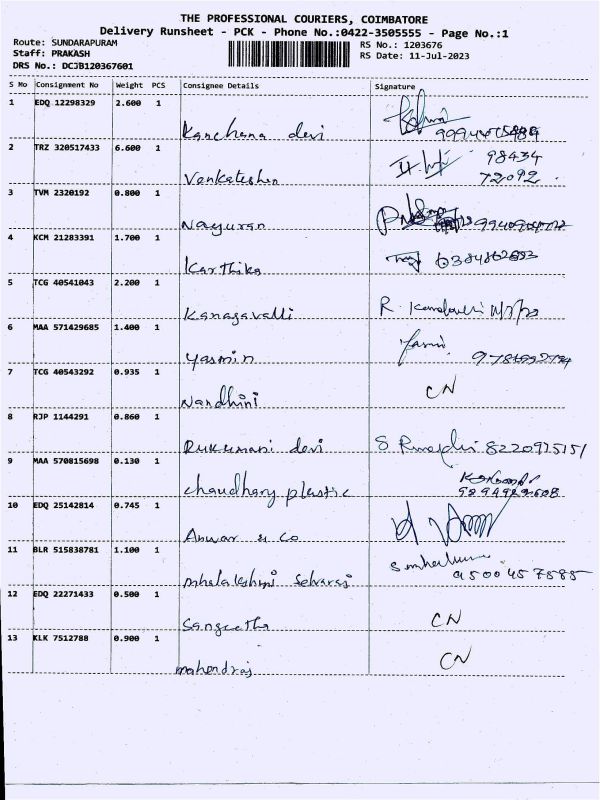 THE PROFESSIONAL COURIERS, COIMBATORE
Delivery Runsheet - PCK - Phone No.:0422-3505555 - Page No.:1
Route: SUNDARAPURAM
Staff: PRAKASH
DRS No.: DCJB120367601
RS No.: 1203676
RS Date: 11-Jul-2023
S No Consignment No Weight PCS Consignee Details Signature
1 EDQ 12298329 2.600 1
Kanchana devi
2 TRZ 320517433 6.600 1 98434
Venkateshn 72092
3 TVM 2320192 0.800 1
Nayuran
4 KCM 21283391 1.700 1
Karthika
5 TCG 40541043 2.200 1
Kanagavalli R.
6 MAA 571429685 1.400 1
Yasmin
7 TCG 40543292 0.935 1 CN
Nandhini
8 RJP 1144291 0.860 1
Rukumani devi S 8220915151
9 MAA 570815698 0.130 1
chaudhary plastic
10 EDQ 25142814 0.745 1
Anwar & co
11 BLR 515838781 1.100 1
mhalakshmi Selvaraj 9500457585
12 EDQ 22271433 0.500 1 CN
Sangeetha
13 KLK 7512788 0.900 1 CN
mahendraj